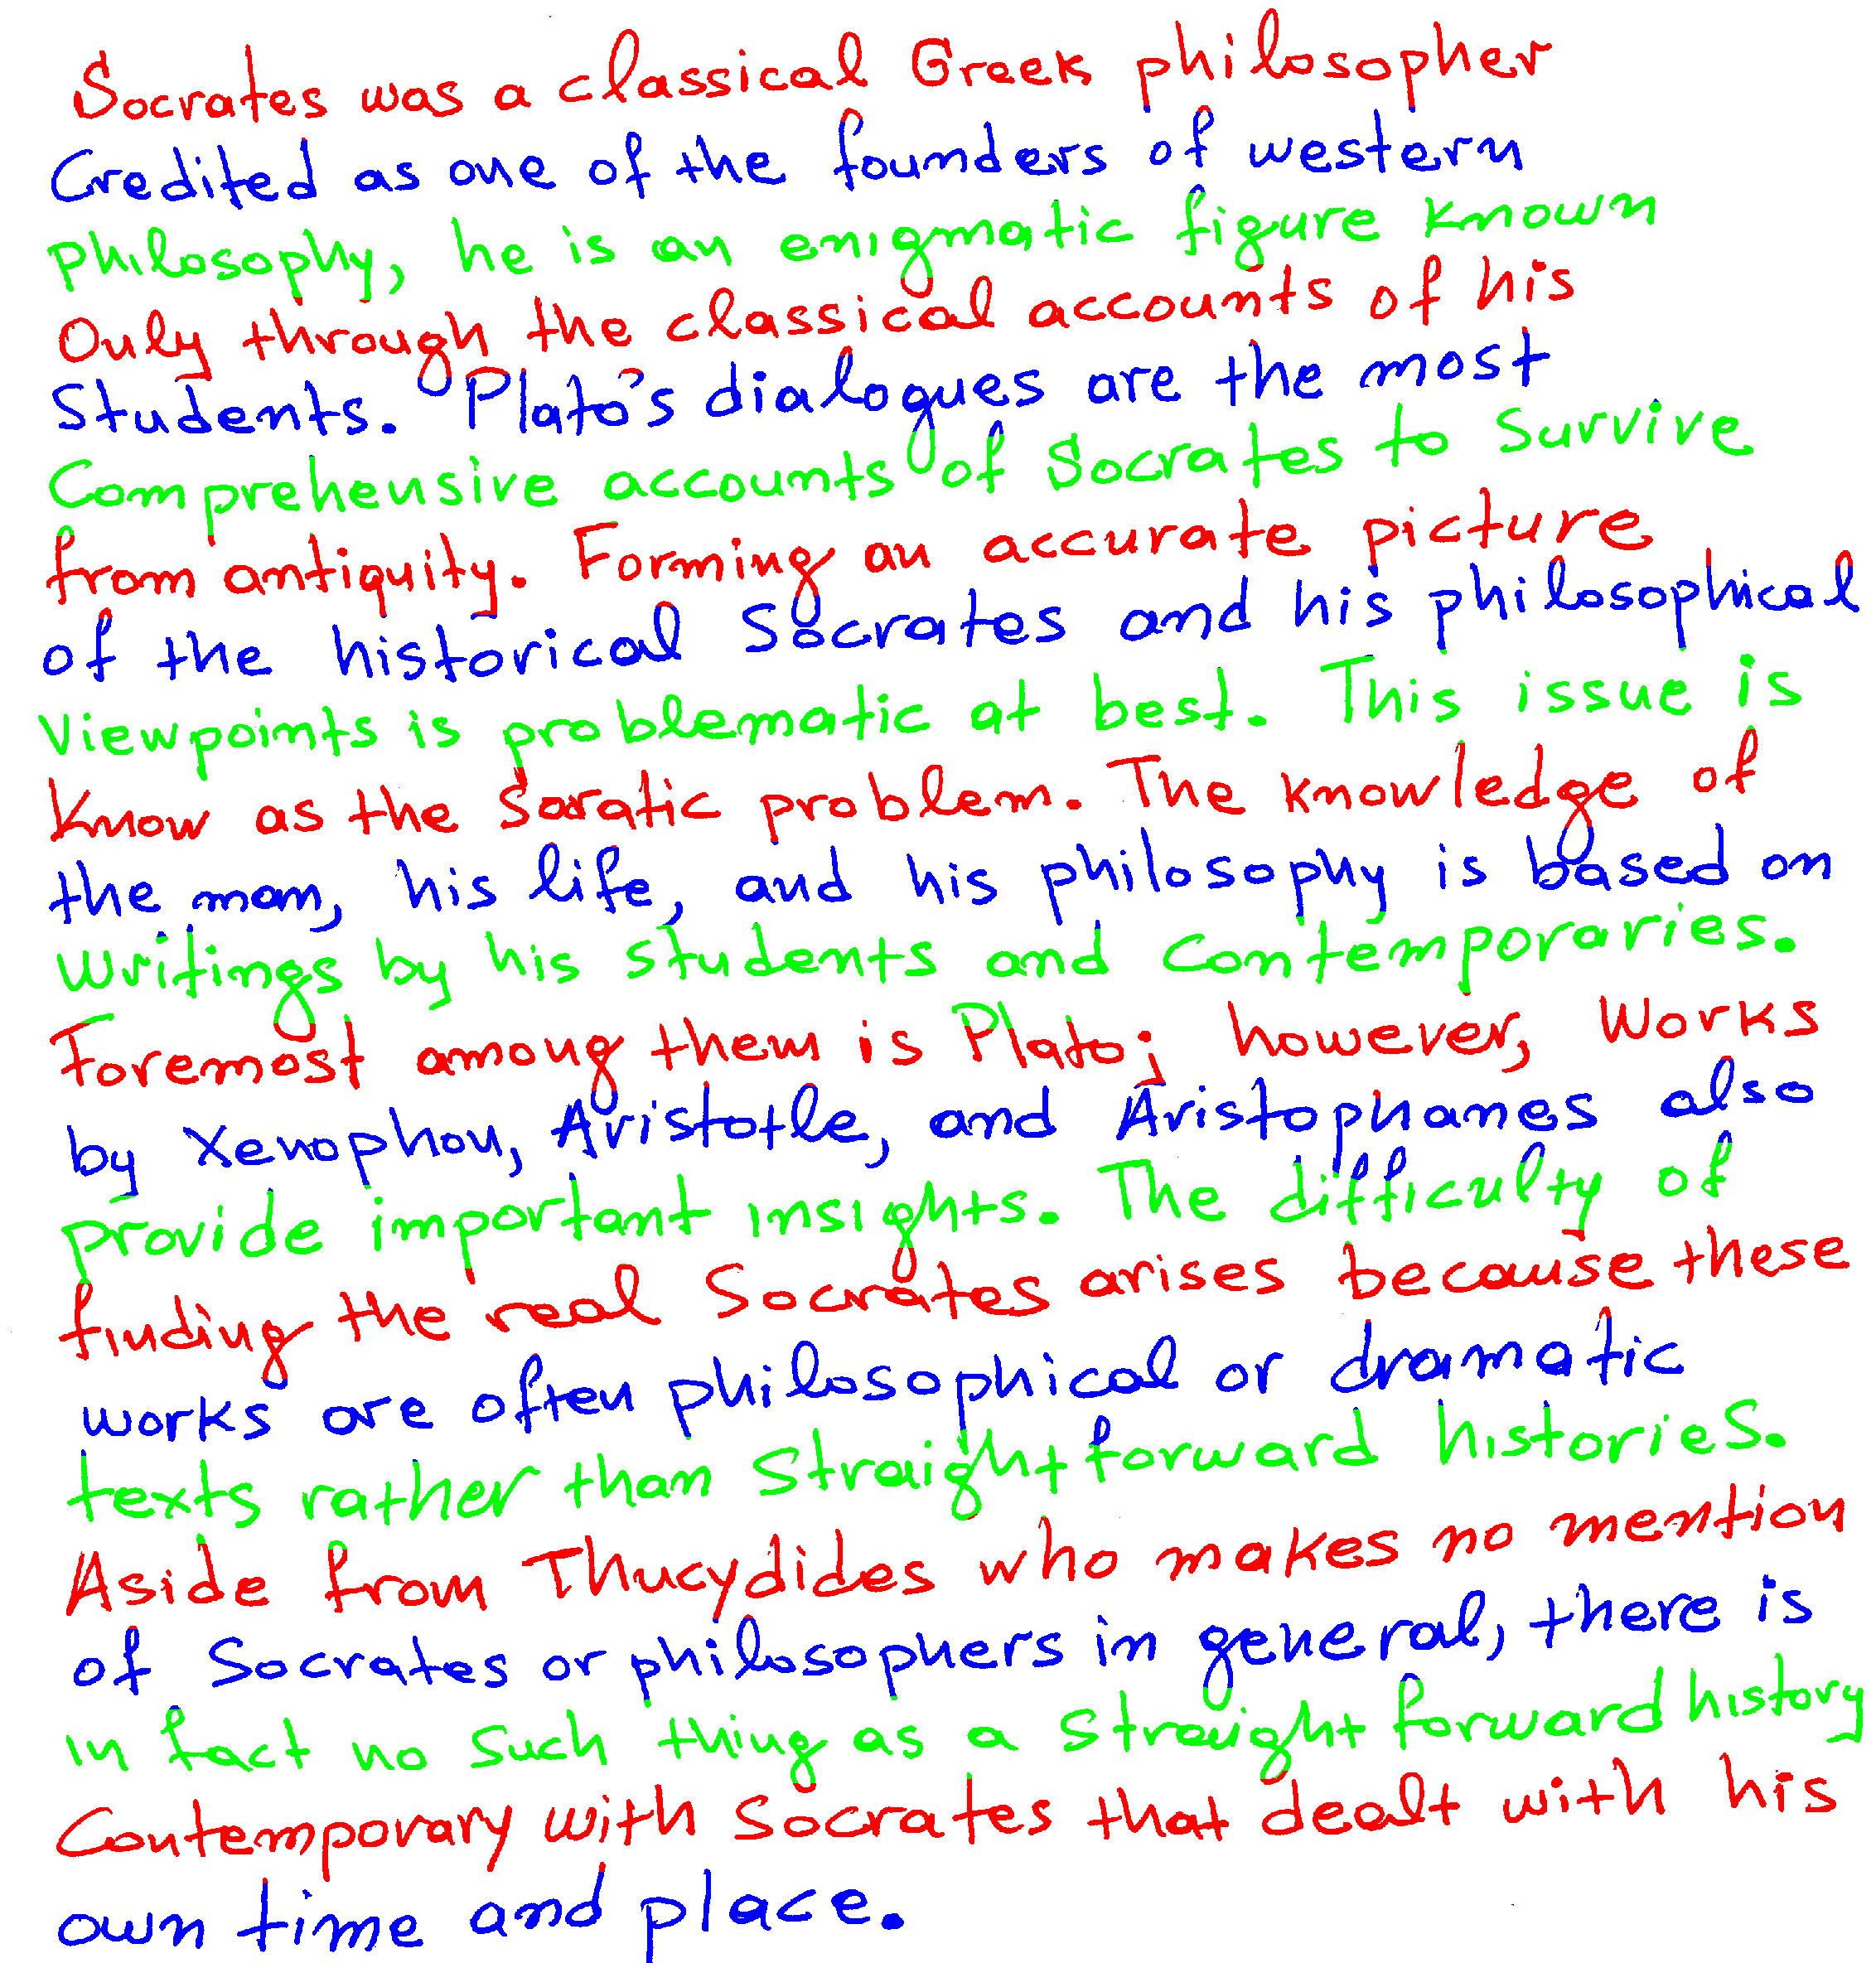 Socrates was a classical Greek philosopher
Credited as one of the founders of western
philosophy, he is an enigmatic figure known
Only through the classical accounts of his
Students. Plato's dialogues are the most
Comprehensive accounts of Socrates to survive
from antiquity. Forming an accurate picture
of the historical Socrates and his philosophical
viewpoints is problematic at best. This issue is
Know as the Soratic problem. The knowledge of
the man, his life, and his philosophy is based on
writings by his students and contemporaries.
Foremost among them is Plato; however, works
by Xenophon, Aristotle, and Aristophanes also
provide important insights. The difficulty of
finding the real Socrates arises because these
works are often philosophical or dramatic
texts rather than straightforward histories.
Aside from Thucydides who makes no mention
of Socrates or philosophers in general, there is
in fact no such thing as a straight forward history
Contemporary with Socrates that dealt with his
own time and place.